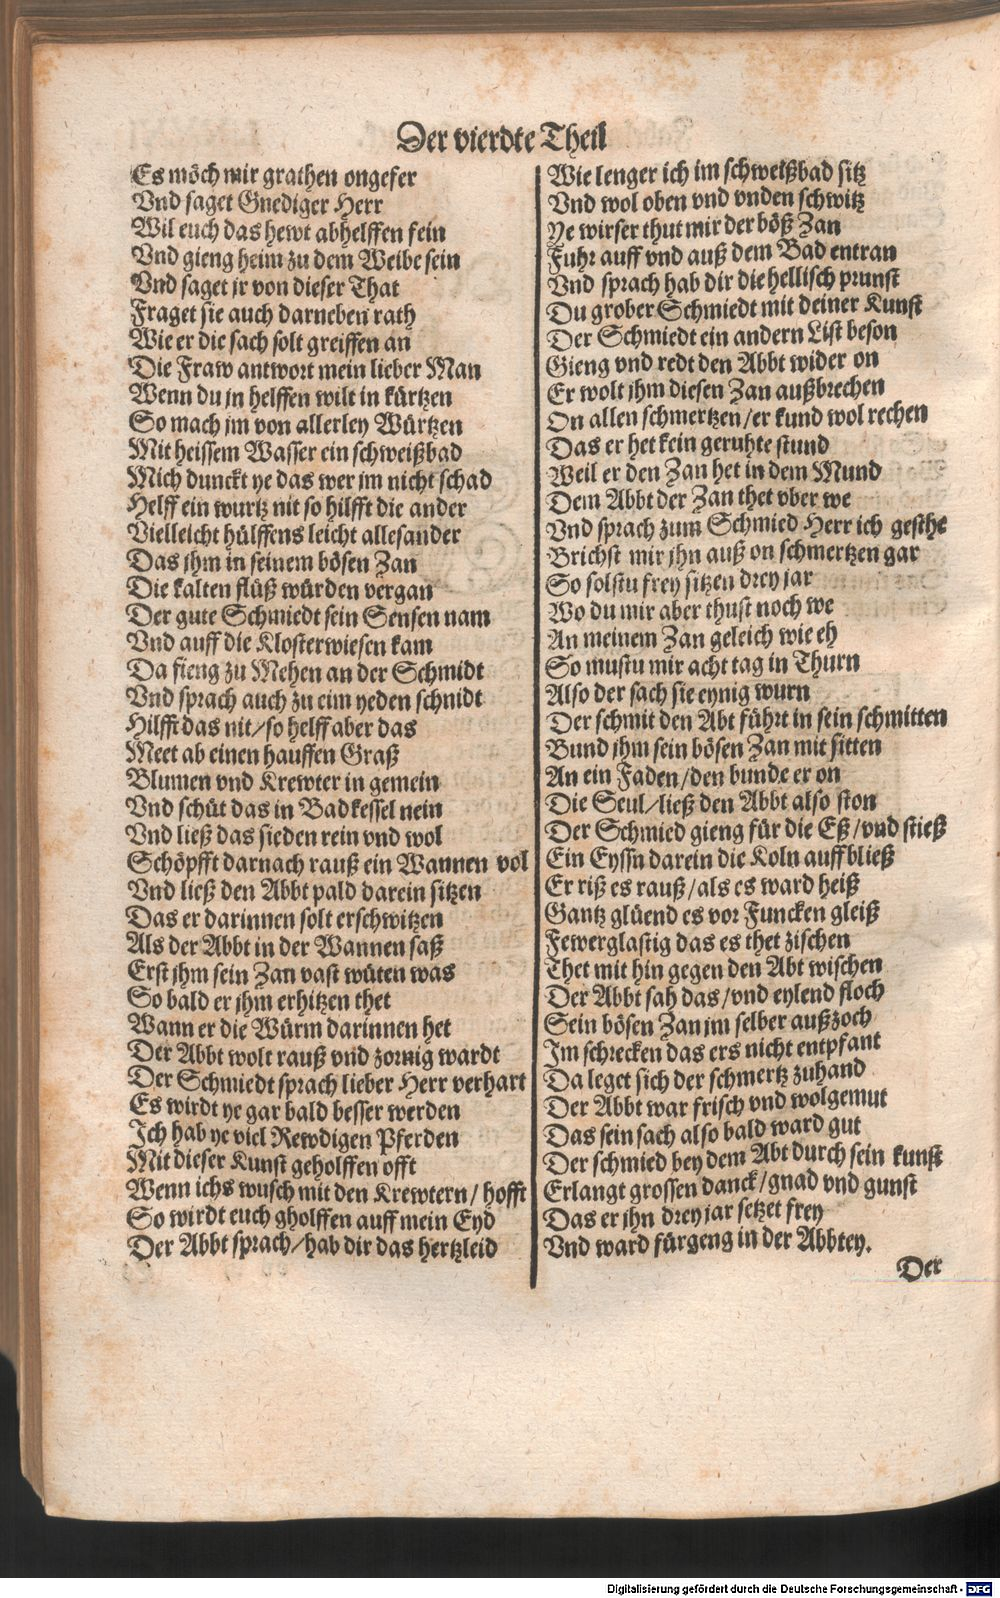 Der vierdte Theil
Es möch mir grathen ongefer
Vnd saget Gnediger Herr
Wil euch das hewt abhelffen fein
Vnd gieng heim zu dem Weibe sein
Vnd saget jr von dieser That
Fraget sie auch darneben rath
Wie er die sach solt greiffen an
Die Fraw antwort mein lieber Man
Wenn du jn helffen wilt in kürtzen
So mach jm von allerley Würtzen
Mit heissem Wasser ein schweißbad
Mich dunckt ye das wer jm nicht schad
Helff ein wurtz nit so hilfft die ander
Vielleicht hülffens leicht allesander
Das jhm in seinem bösen Zan
Die kalten flüß würden vergan
Der gute Schmiedt sein Sensen nam
Vnd auff die Klosterwiesen kam
Da fieng zu Mehen an der Schmidt
Vnd sprach auch zu eim yeden schnidt
Hilfft das nit/so helff aber das
Meet ab einen hauffen Graß
Blumen vnd Krewter in gemein
Vnd schüt das in Badkessel nein
Vnd ließ das sieden rein vnd wol
Schöpfft darnach rauß ein Wannen vol
Vnd ließ den Abbt pald darein sitzen
Das er darinnen solt erschwitzen
Als der Abbt in der Wannen saß
Erst jhm sein Zan vast wüten was
So bald er jhm erhitzen thet
Wann er die Würm darinnen het
Der Abbt wolt rauß vnd zornig wardt
Der Schmiedt sprach lieber Herr verhart
Es wirdt ye gar bald besser werden
Ich hab ye viel Rewdigen Pferden
Mit dieser Kunst geholffen offt
Wenn ichs wusch mit den Krewtern/hofft
So wirdt euch gholffen auff mein Eyd
Der Abbt sprach/hab dir das hertzleid
Wie lenger ich im schweißbad sitz
Vnd wol oben vnd vnden schwitz
Ye wirser thut mir der böß Zan
Fuhr auff vnd auß dem Bad entran
Vnd sprach hab dir die hellisch prunst
Du grober Schmiedt mit deiner Kunst
Der Schmiedt ein andern List beson
Gieng vnd redt den Abbt wider on
Er wolt jhm diesen Zan außbrechen
On allen schmertzen/er kund wol rechen
Das er het kein geruhte stund
Weil er den Zan het in dem Mund
Dem Abbt der Zan thet vber we
Vnd sprach zum Schmied Herr ich gesthe
Brichst mir jhn auß on schmertzen gar
So solstu frey sitzen drey jar
Wo du mir aber thust noch we
An meinem Zan geleich wie eh
So mustu mir acht tag in Thurn
Also der sach sie eynig wurn
Der schmit den Abt führt in sein schmitten
Bund jhm sein bösen Zan mit sitten
An ein Faden/den bunde er on
Die Seul/ließ den Abbt also ston
Der Schmied gieng für die Eß/vnd stieß
Ein Eyssn darein die Koln auffbließ
Er riß es rauß/als es ward heiß
Gantz glüend es vor Funcken gleiß
Fewerglastig das es thet zischen
Thet mit hin gegen den Abt wischen
Der Abbt sah das/vnd eylend floch
Sein bösen Zan jm selber außzoch
Im schrecken das ers nicht entpfant
Da leget sich der schmertz zuhand
Der Abbt war frisch vnd wolgemut
Das sein sach also bald ward gut
Der schmied bey dem Abt durch sein kunst
Erlangt grossen danck/gnad vnd gunst
Das er jhn drey jar setzet frey
Vnd ward fürgeng in der Abbtey.
Der
Digitalisierung gefördert durch die Deutsche Forschungsgemeinschaft - DFG